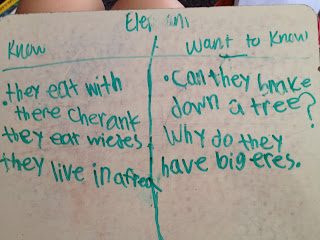 Know
• they eat with
there cherank
they eat
they live in
Want to Know
• Can they brake
down a tree?
Why do they
have big eres.